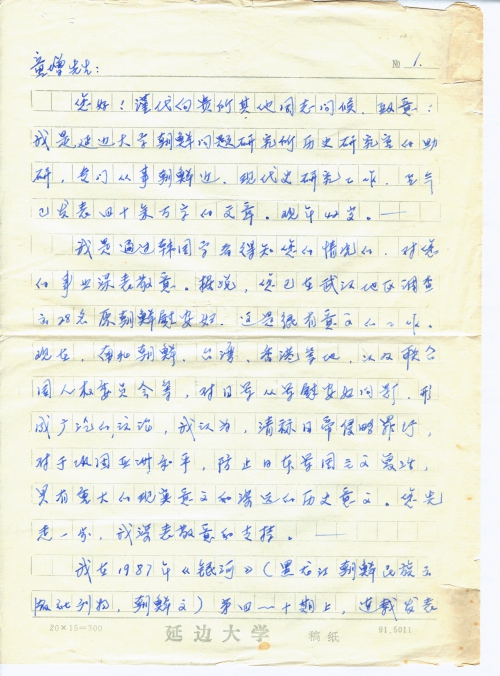 童增先生：
№ 1.
您好！谨代向贵所其他同志问候、致意：
我是延边大学朝鲜问题研究所历史研究室的助
研，专门从事朝鲜近、现代史研究工作，至今
已发表四十余万字的文章。现年42岁。——
我是通过韩国学者得知您的情况的，对您
的事业深表敬意。据说，您已在武汉地区调查
出28名原朝鲜慰安妇，这是很有意义的工作。
现在，南和朝鲜、台湾、香港等地，以及联合
国人权委员会等，对日军从军慰安妇问题，形
成广泛的议论，我认为，清算日帝侵略罪行，
对于巩固亚洲和平，防止日本军国主义复活，
具有重大的现实意义和深远的历史意义。您先
走一步，我深表敬意和支持。——
我在1987年《银河》（黑龙江朝鲜民族出
版社刊物，朝鲜文）第四～十期上，连载发表
20×15=300
延边大学 稿纸
91.5011